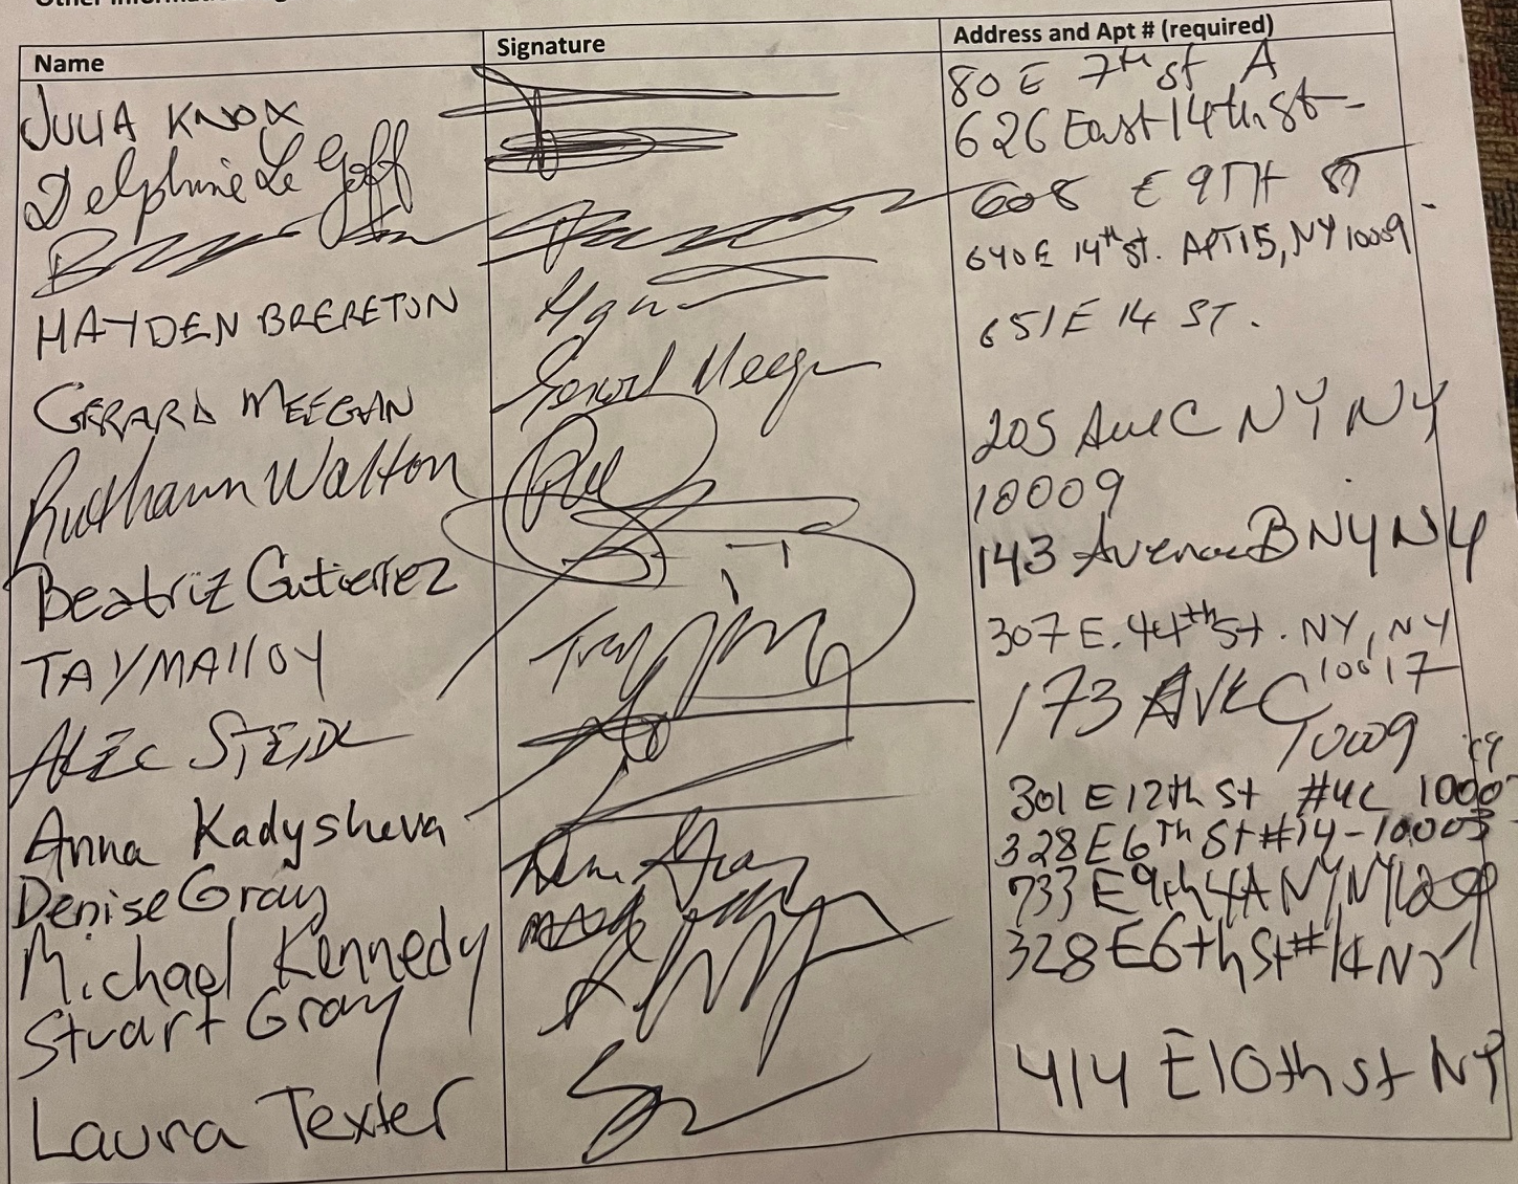 Name Signature Address and Apt # (required)
JULIA KNOX 80 E 7th st A
Delphine Le Goff 626 East 14th St-
608 E 9TH ST
HAYDEN BRERETON 640 E 14th St. APT 15, NY 10009
GERARD MEEGAN Gerard Meegan 651 E 14 ST.
Ruthann Walton 205 Ave C NY NY
10009
Beatriz Gutierrez 143 Avenue B NY NY
TAY MAlloy 307 E. 44th St. NY, NY
10017
ALEC STEIDL 173 AVE C
10009
Anna Kadysheva 301 E 12th St #4C
Denise Gray 328 E 6Th St #14-10003
Michael Kennedy 733 E 9th 4A NY NY
Stuart Gray 328 E 6th St #14 NY
Laura Texter 414 E 10th st NY